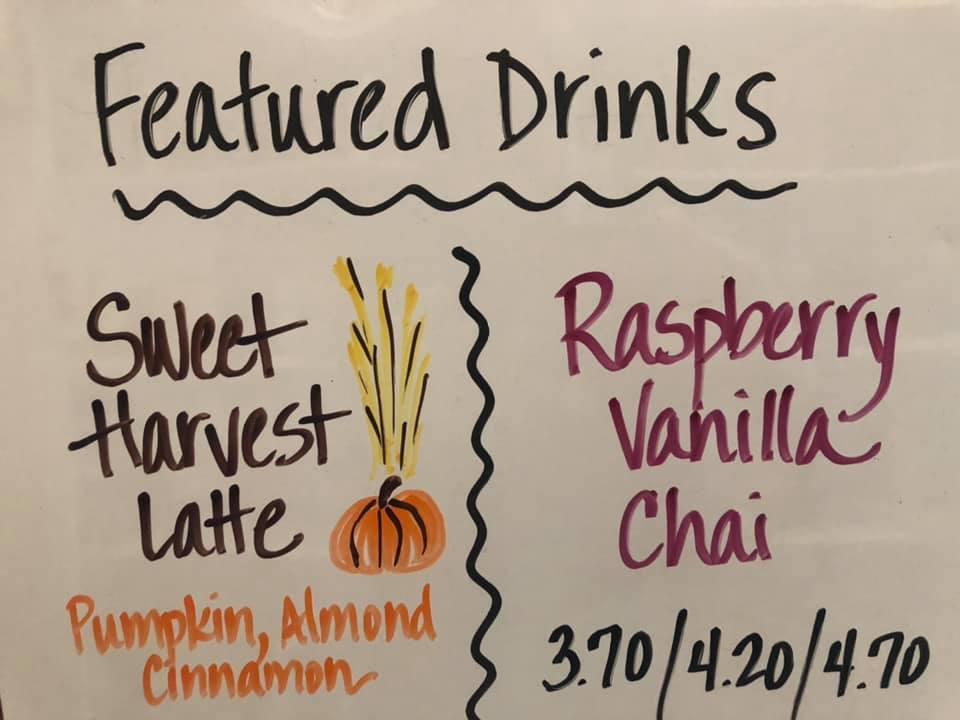 Featured Drinks
Sweet
Harvest
Latte
Pumpkin, Almond
Cinnamon
Raspberry
Vanilla
Chai
3.70/4.20/4.70